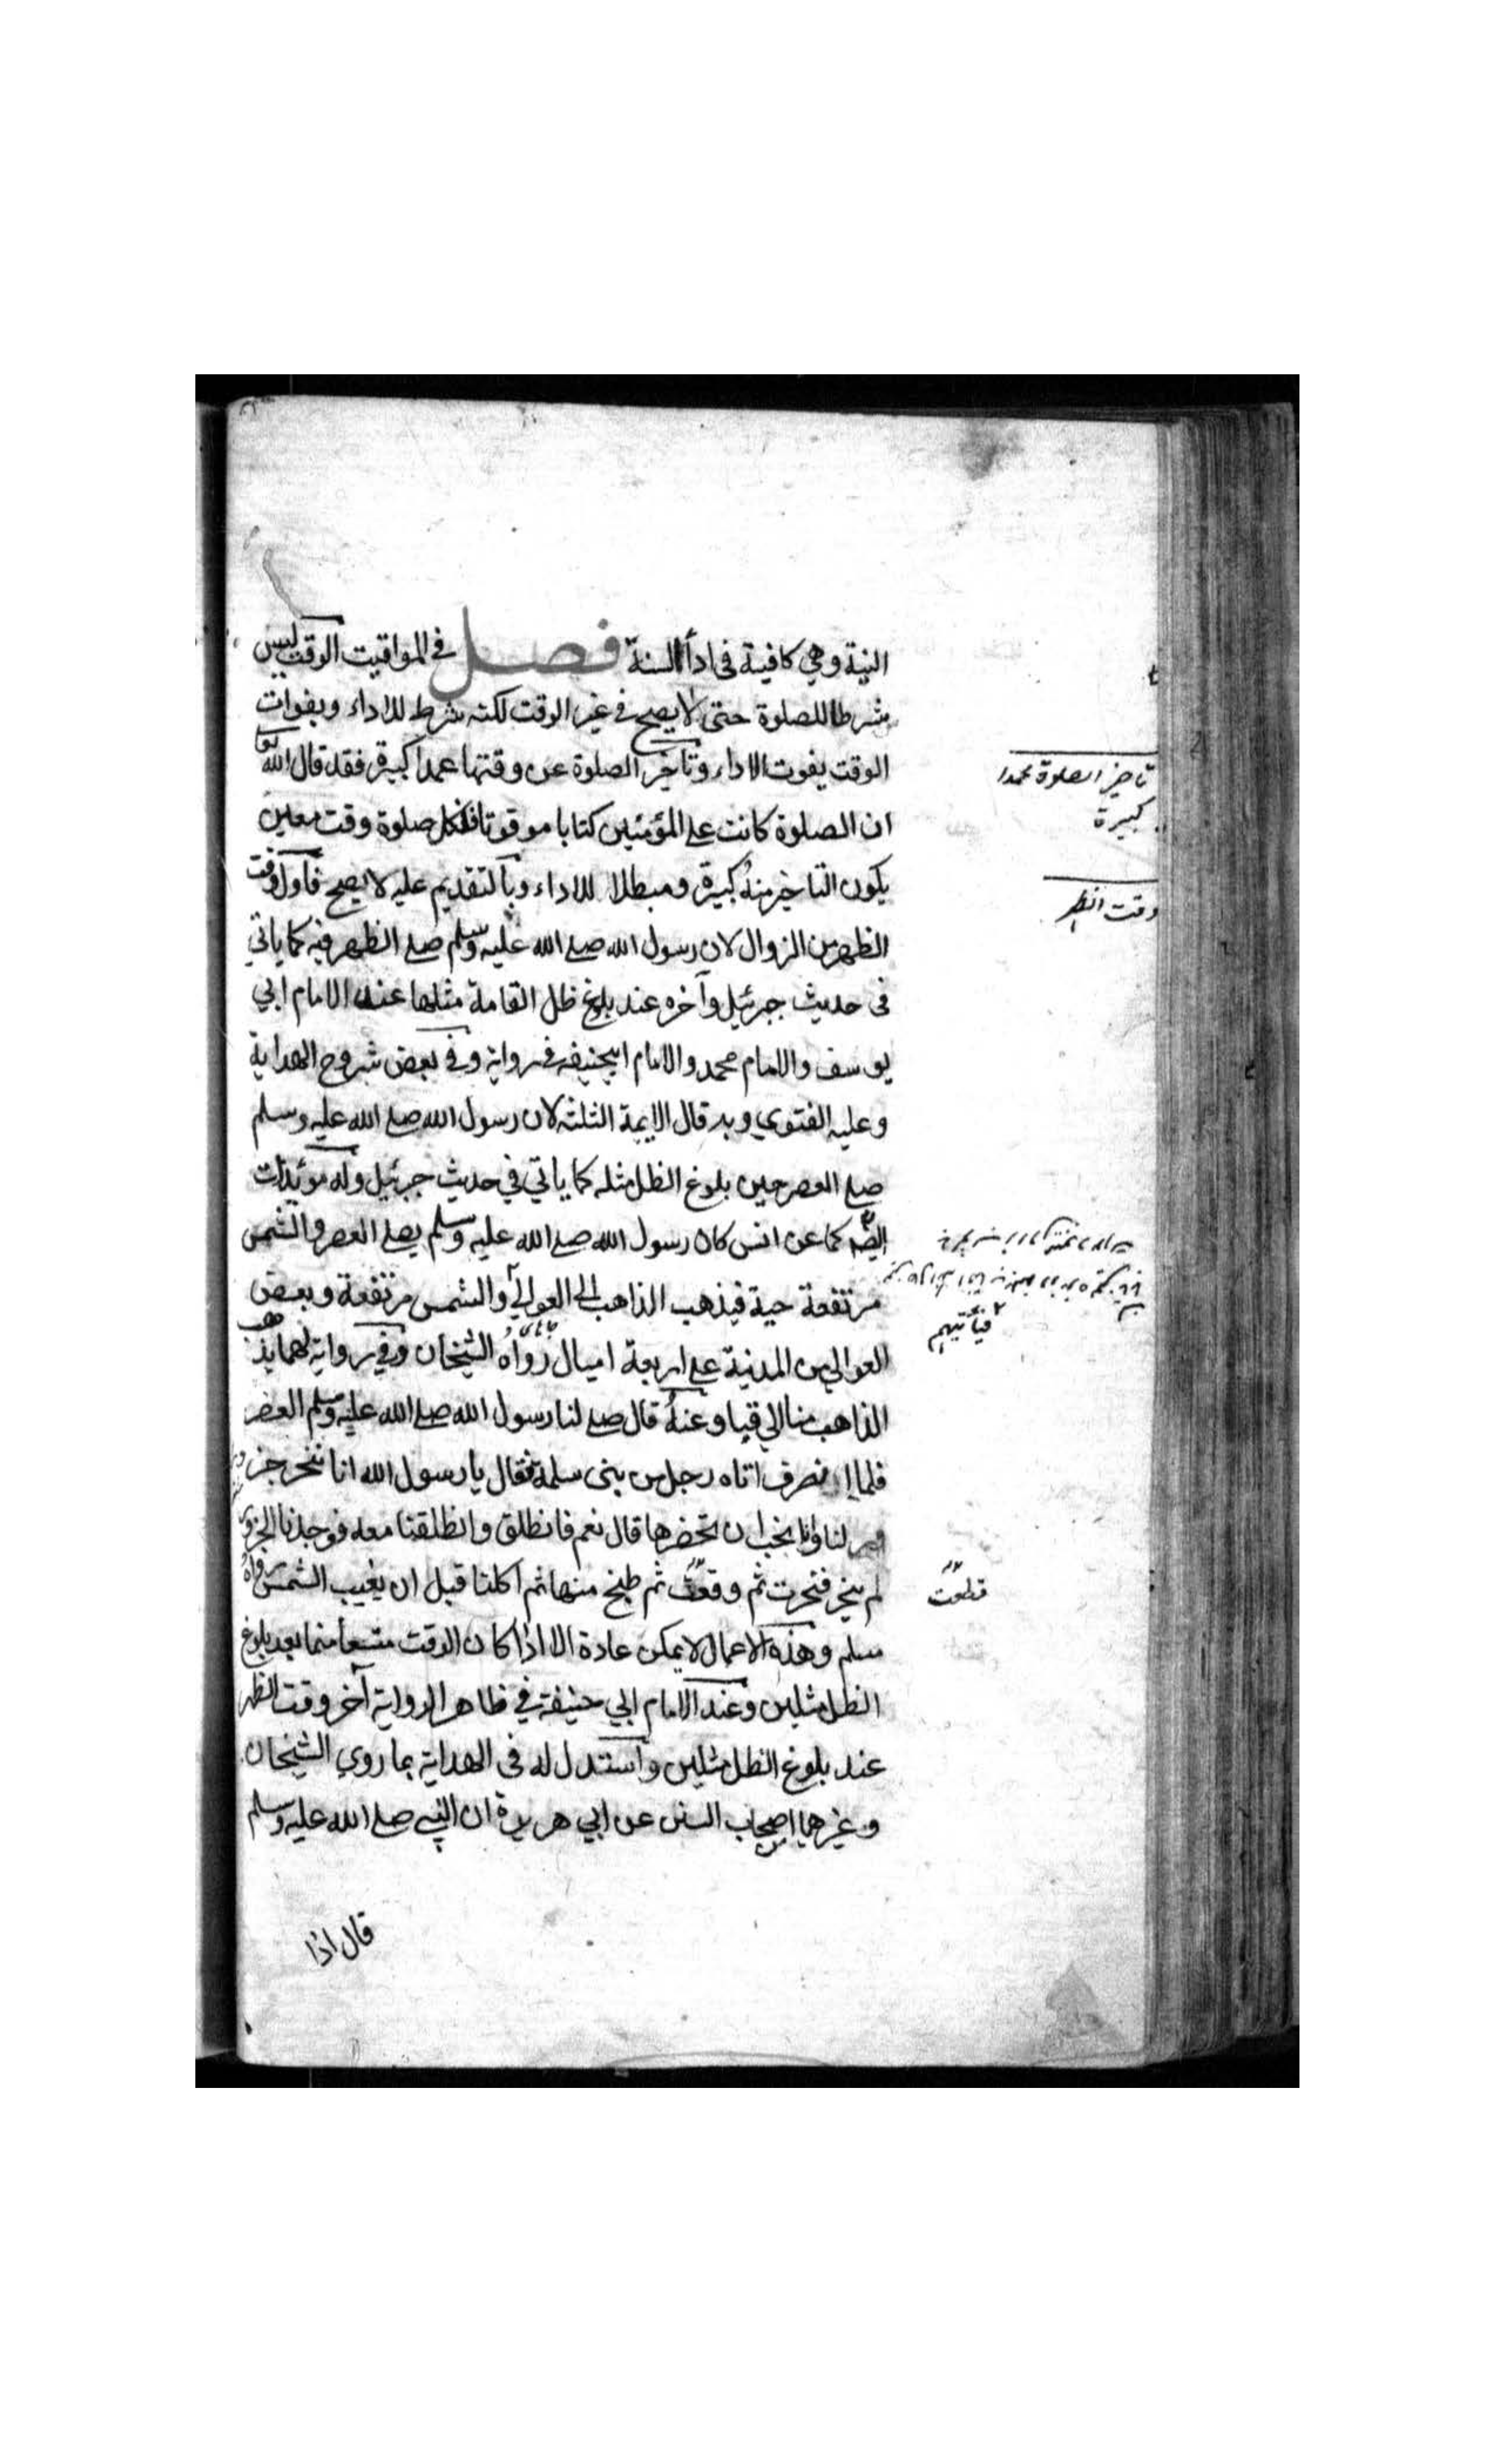 النية وهي كافية في اداء السنة فصل في المواقيت الوقت ليس
شرطا للصلوة حتى لا يصح في غير الوقت لكنه شرط للاداء وبفوات
الوقت يفوت الاداء وتاخير الصلوة عن وقتها عمدا كبيرة فقد قال الله تع
ان الصلوة كانت على المؤمنين كتابا موقوتا فلكل صلوة وقت معين
يكون التاخير منه كبيرة ومبطلا للاداء وبالتقديم عليه لا يصح فاول وقت
الظهر من الزوال لان رسول الله صلى الله عليه وسلم صلى الظهر فيه كما ياتي
في حديث جبرئيل وآخره عند بلوغ ظل القامة مثلها عند الامام ابي
يوسف والامام محمد والامام ابيحنيفه في رواية وفي بعض شروح الهداية
وعليه الفتوي وبه قال الايمة الثلثة لان رسول الله صلى الله عليه وسلم
صلى العصر حين بلوغ الظل مثله كما ياتي في حديث جبرئيل وله مؤيدات
ايضا كما عن انس كان رسول الله صلى الله عليه وسلم يصلي العصر والشمس
مرتفعة حية فيذهب الذاهب الى العوالي والشمس مرتفعة وبعض
العوالي من المدينة على اربعة اميال رواه الشيخان وفي رواية لهما يذهب
الذاهب منا الى قبا وعنه قال صلى لنا رسول الله صلى الله عليه وسلم العصر
فلما انصرف اتاه رجل من بني سلمة فقال يا رسول الله انا ننحر جزو
لنا وانا نحب ان تحضرها قال نعم فانطلق وانطلقنا معه فوجدنا الجزور
لم ينحر فنحرت ثم وقعت ثم طبخ منها ثم اكلنا قبل ان يغيب الشمس رواه
مسلم وهذه الاعمال لا يمكن عادة الا اذا كان الوقت متسعا منما بعد بلوغ
الظل مثلين وعند الامام ابي حنيفة في ظاهر الرواية آخر وقت الظهر
عند بلوغ الظل مثلين واستدل له في الهداية بما روي الشيخان
وغيرهما اصحاب السنن عن ابي هريرة ان النبي صلى الله عليه وسلم
قال اذا
تاخير الصلوة عمدا
كبيرة
وقت الظهر
فيأتيهم
قطعت